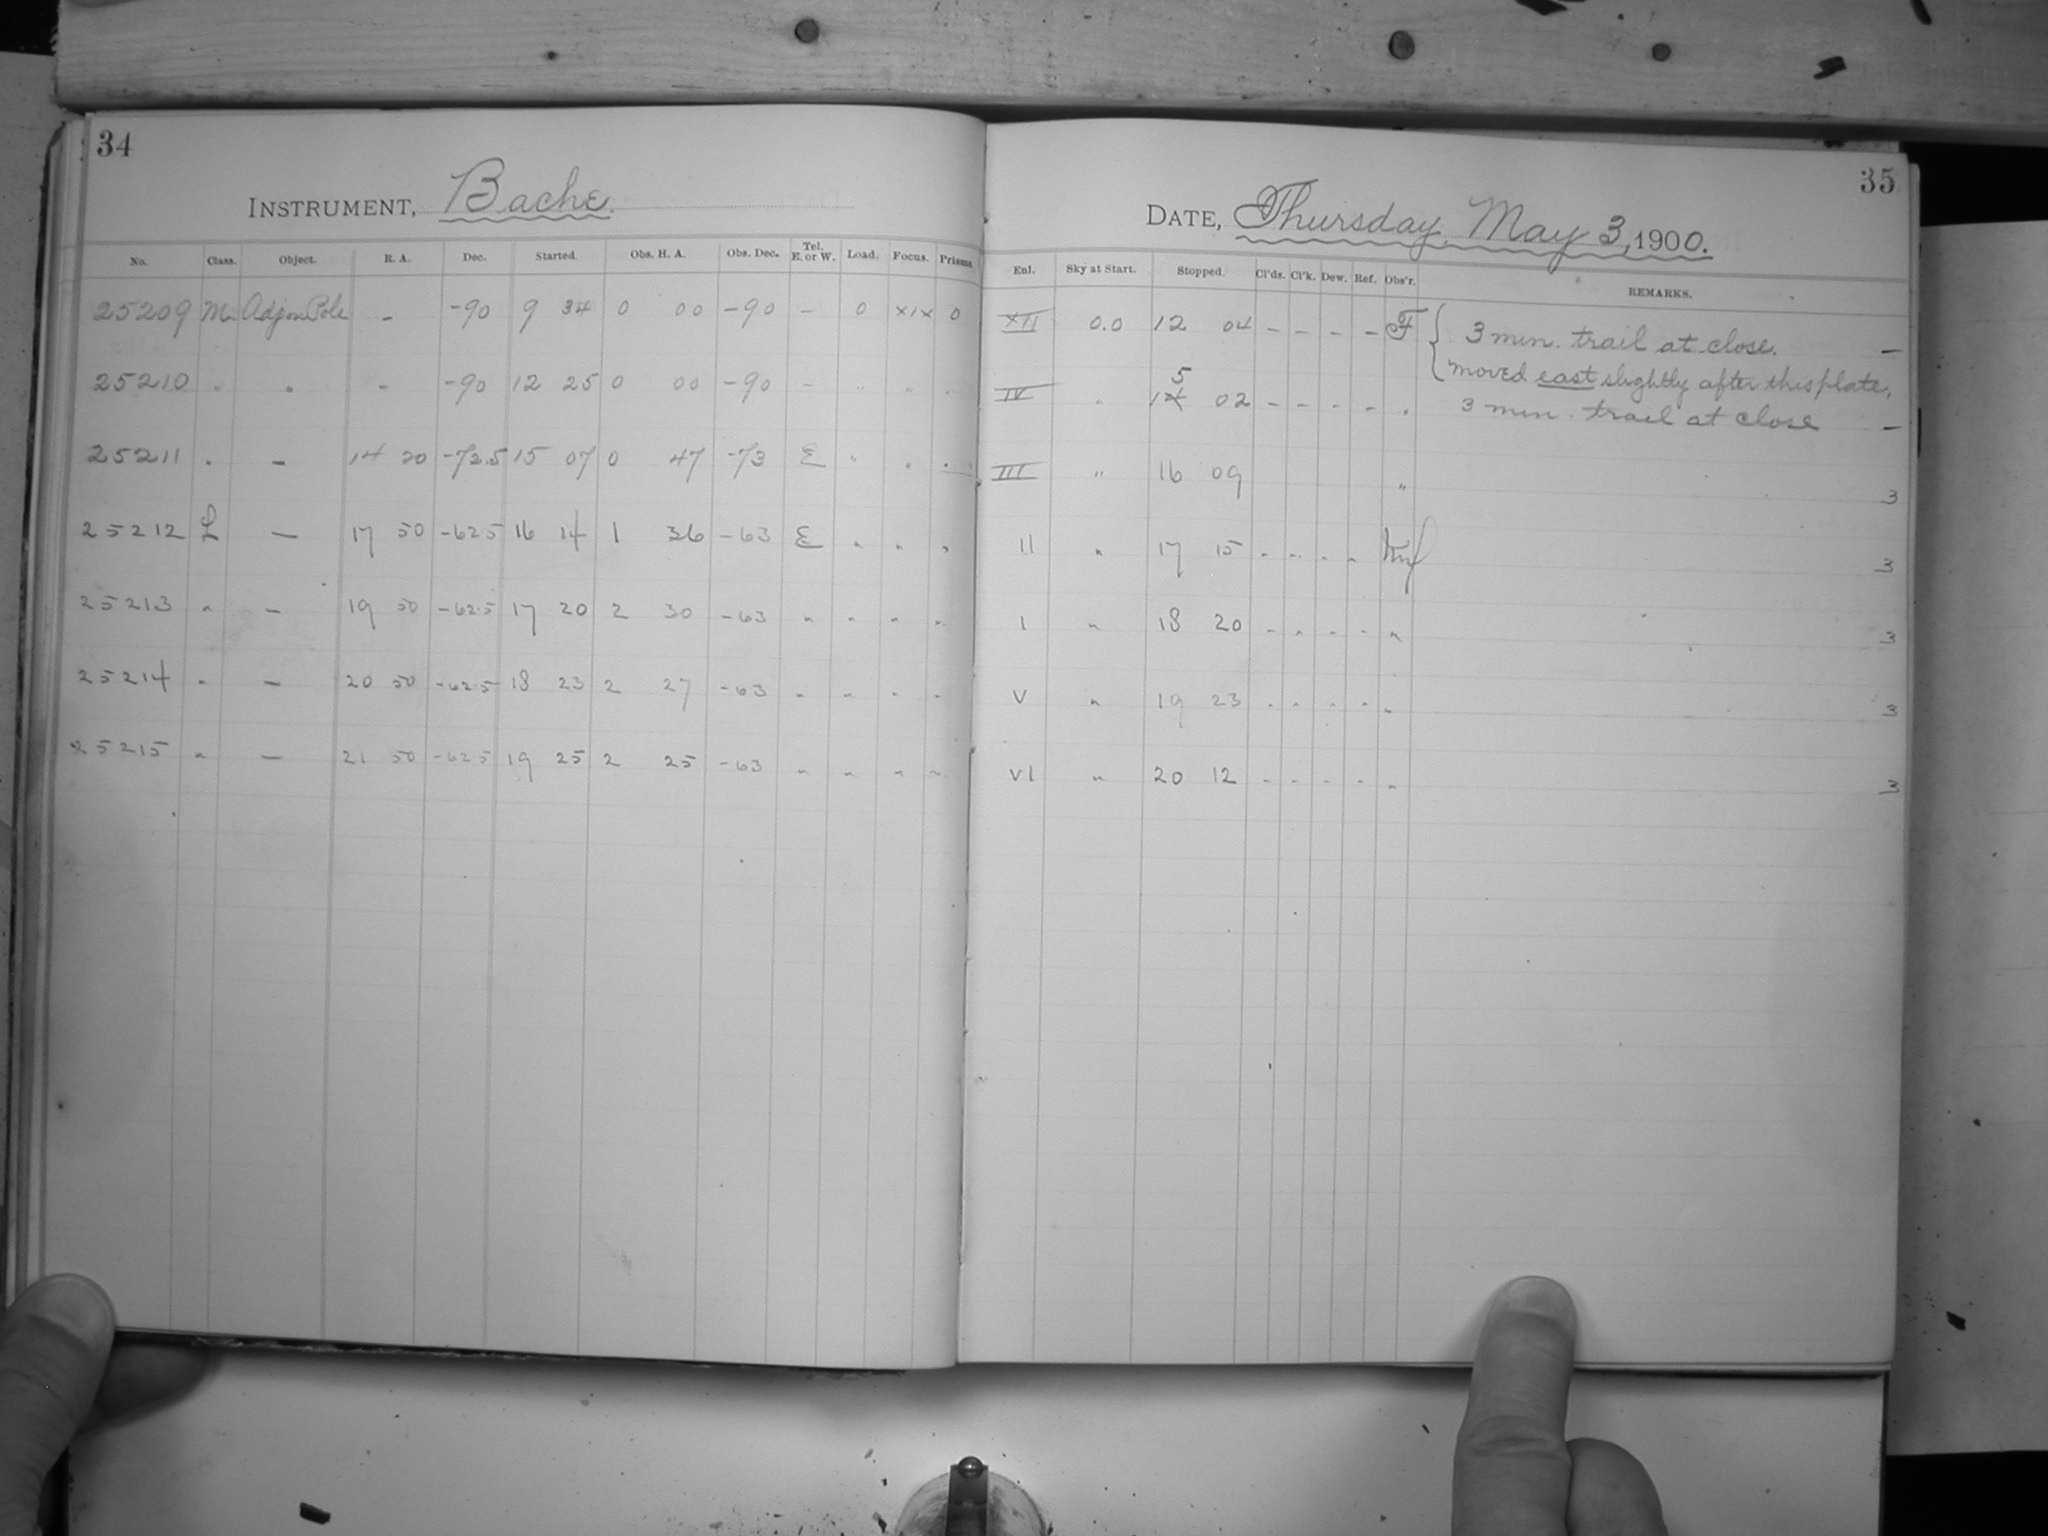 34
INSTRUMENT, Bache.
No. Class. Object. R. A. Dec. Started. Obs. H. A. Obs. Dec. Tel. E. or W. Load. Focus. Prisms.
25209 M. Adj on Pole - -90 9 34 0 00 -90 - 0 XIX 0
25210 " " - -90 12 25 0 00 -90 - " " "
25211 " - 14 20 -72.5 15 07 0 47 -73 E " " "
25212 L - 17 50 -62.5 16 14 1 36 -63 E " " "
25213 " - 19 50 -62.5 17 20 2 30 -63 " " " "
25214 " - 20 50 -62.5 18 23 2 27 -63 " " " "
25215 " - 21 50 -62.5 19 25 2 25 -63 " " " "
35
DATE, Thursday, May 3, 1900.
Enl. Sky at Start. Stopped. Cl'ds. Cl'k. Dew. Ref. Obs'r. REMARKS.
XII 0.0 12 04 - - - - F { 3 min. trail at close. -
moved east slightly after this plate.
IV " 15 02 - - - - " 3 min. trail at close -
III " 16 09 " 3
II " 17 15 - - - - 3
I " 18 20 - - - - " 3
V " 19 23 - - - - " 3
VI " 20 12 - - - - " 3